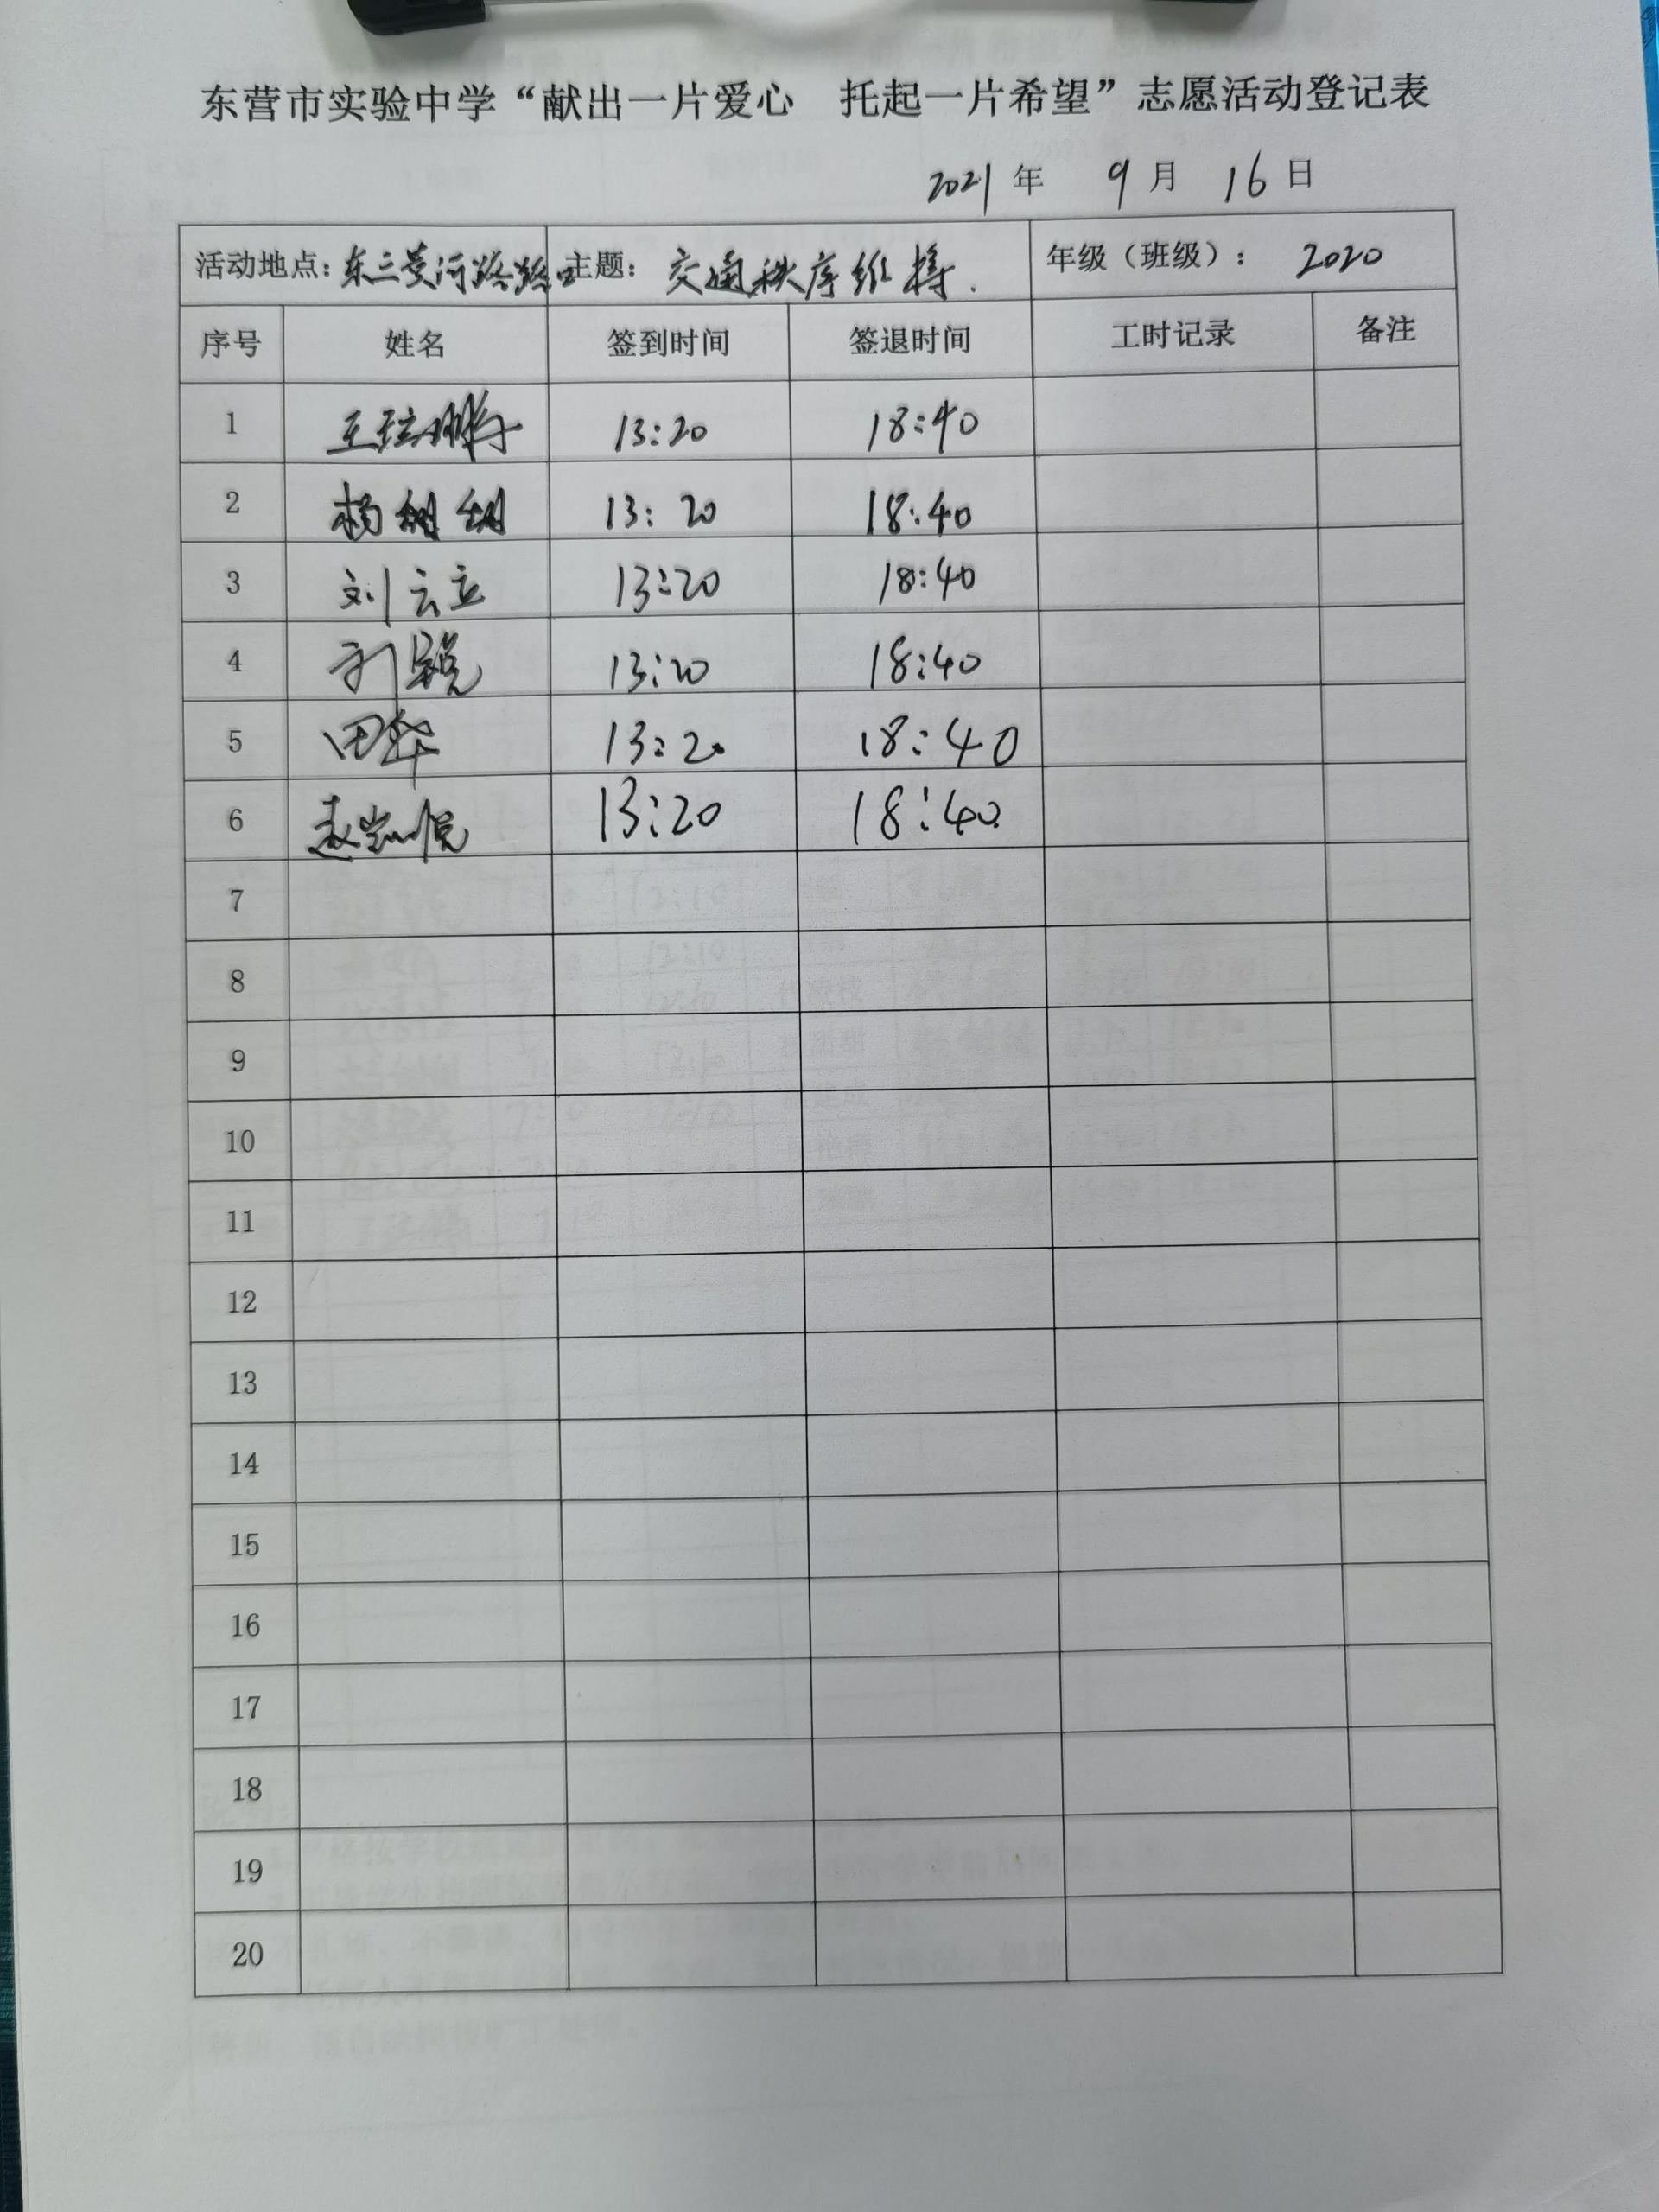 东营市实验中学“献出一片爱心 托起一片希望”志愿活动登记表
2021年 9月 16日
活动地点：东三黄河路路口 主题：交通秩序维持. 年级（班级）：2020
序号 姓名 签到时间 签退时间 工时记录 备注
1 王 鹏 13:20 18:40
2 杨 13:20 18:40
3 刘云立 13:20 18:40
4 13:20 18:40
5 田华 13:20 18:40
6 赵 悦 13:20 18:40
7
8
9
10
11
12
13
14
15
16
17
18
19
20